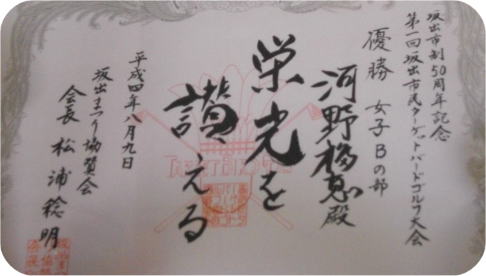 坂出市制50周年記念
第一回坂出市民ターゲットバードゴルフ大会
優勝 女子Bの部
河野 殿
栄光を
讃える
平成四年八月九日
坂出まつり協賛会
会長 松浦稔明